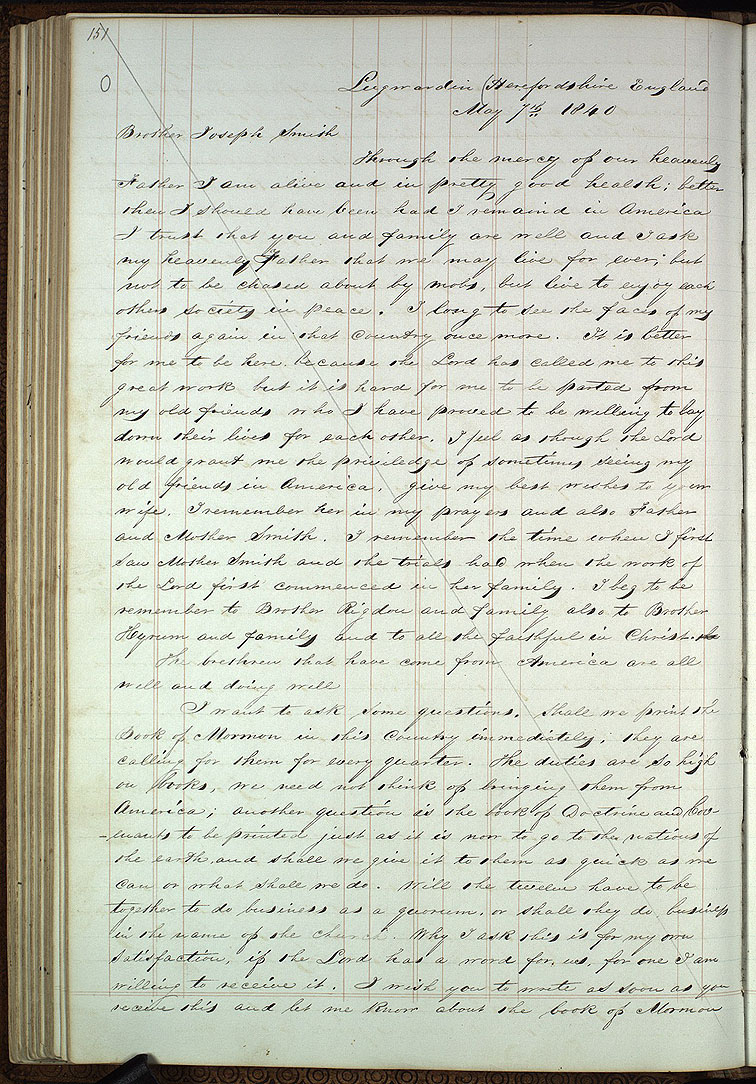 151
O
Lugwardin (Herefordshire England
May 7th 1840
Brother Joseph Smith
Through the mercy of our heavenly
Father I am alive and in pretty good health; better
then I should have been had I remaind in America
I trust that you and family are well and I ask
my heavenly Father that we may live for ever; but
not to be chased about by mobs, but live to enjoy each
others society in peace. I long to see the faces of my
friends again in that Country once more. It is better
for me to be here. because the Lord has called me to this
great work but it is hard for me to be parted from
my old friends who I have proved to be willing to lay
down their lives for each other. I feel as though the Lord
would grant me the priviledge of sometimes seeing my
old friends in America. give my best wishes to your
wife. I remember her in my prayers and also Father
and Mother Smith. I remember the time when I first
saw Mother Smith and the trials had when the work of
the Lord first commenced in her family. I beg to be
remember to Brother Rigdon and family also to Brother
Hyrum and family and to all the faithful in Christ.
The brethren that have come from America are all
well and doing well
I want to ask some questions. Shall we print the
Book of Mormon in this Country immedietely; they are
calling for them for every quarter. The duties are so high
on books, we need not think of bringing them from
America; another question is the book of Doctrine and Cov-
-enants to be printed just as it is now to go to the nations of
the earth and shall we give it to them as quick as we
can or what shall we do. Will the twelve have to be
together to do business as a quorum. or shall they do business
in the name of the church. Why I ask this is for my own
satisfaction, if the Lord has a word for us, for one I am
willing to receive it. I wish you to write as soon as you
receive this and let me know about the book of Mormon